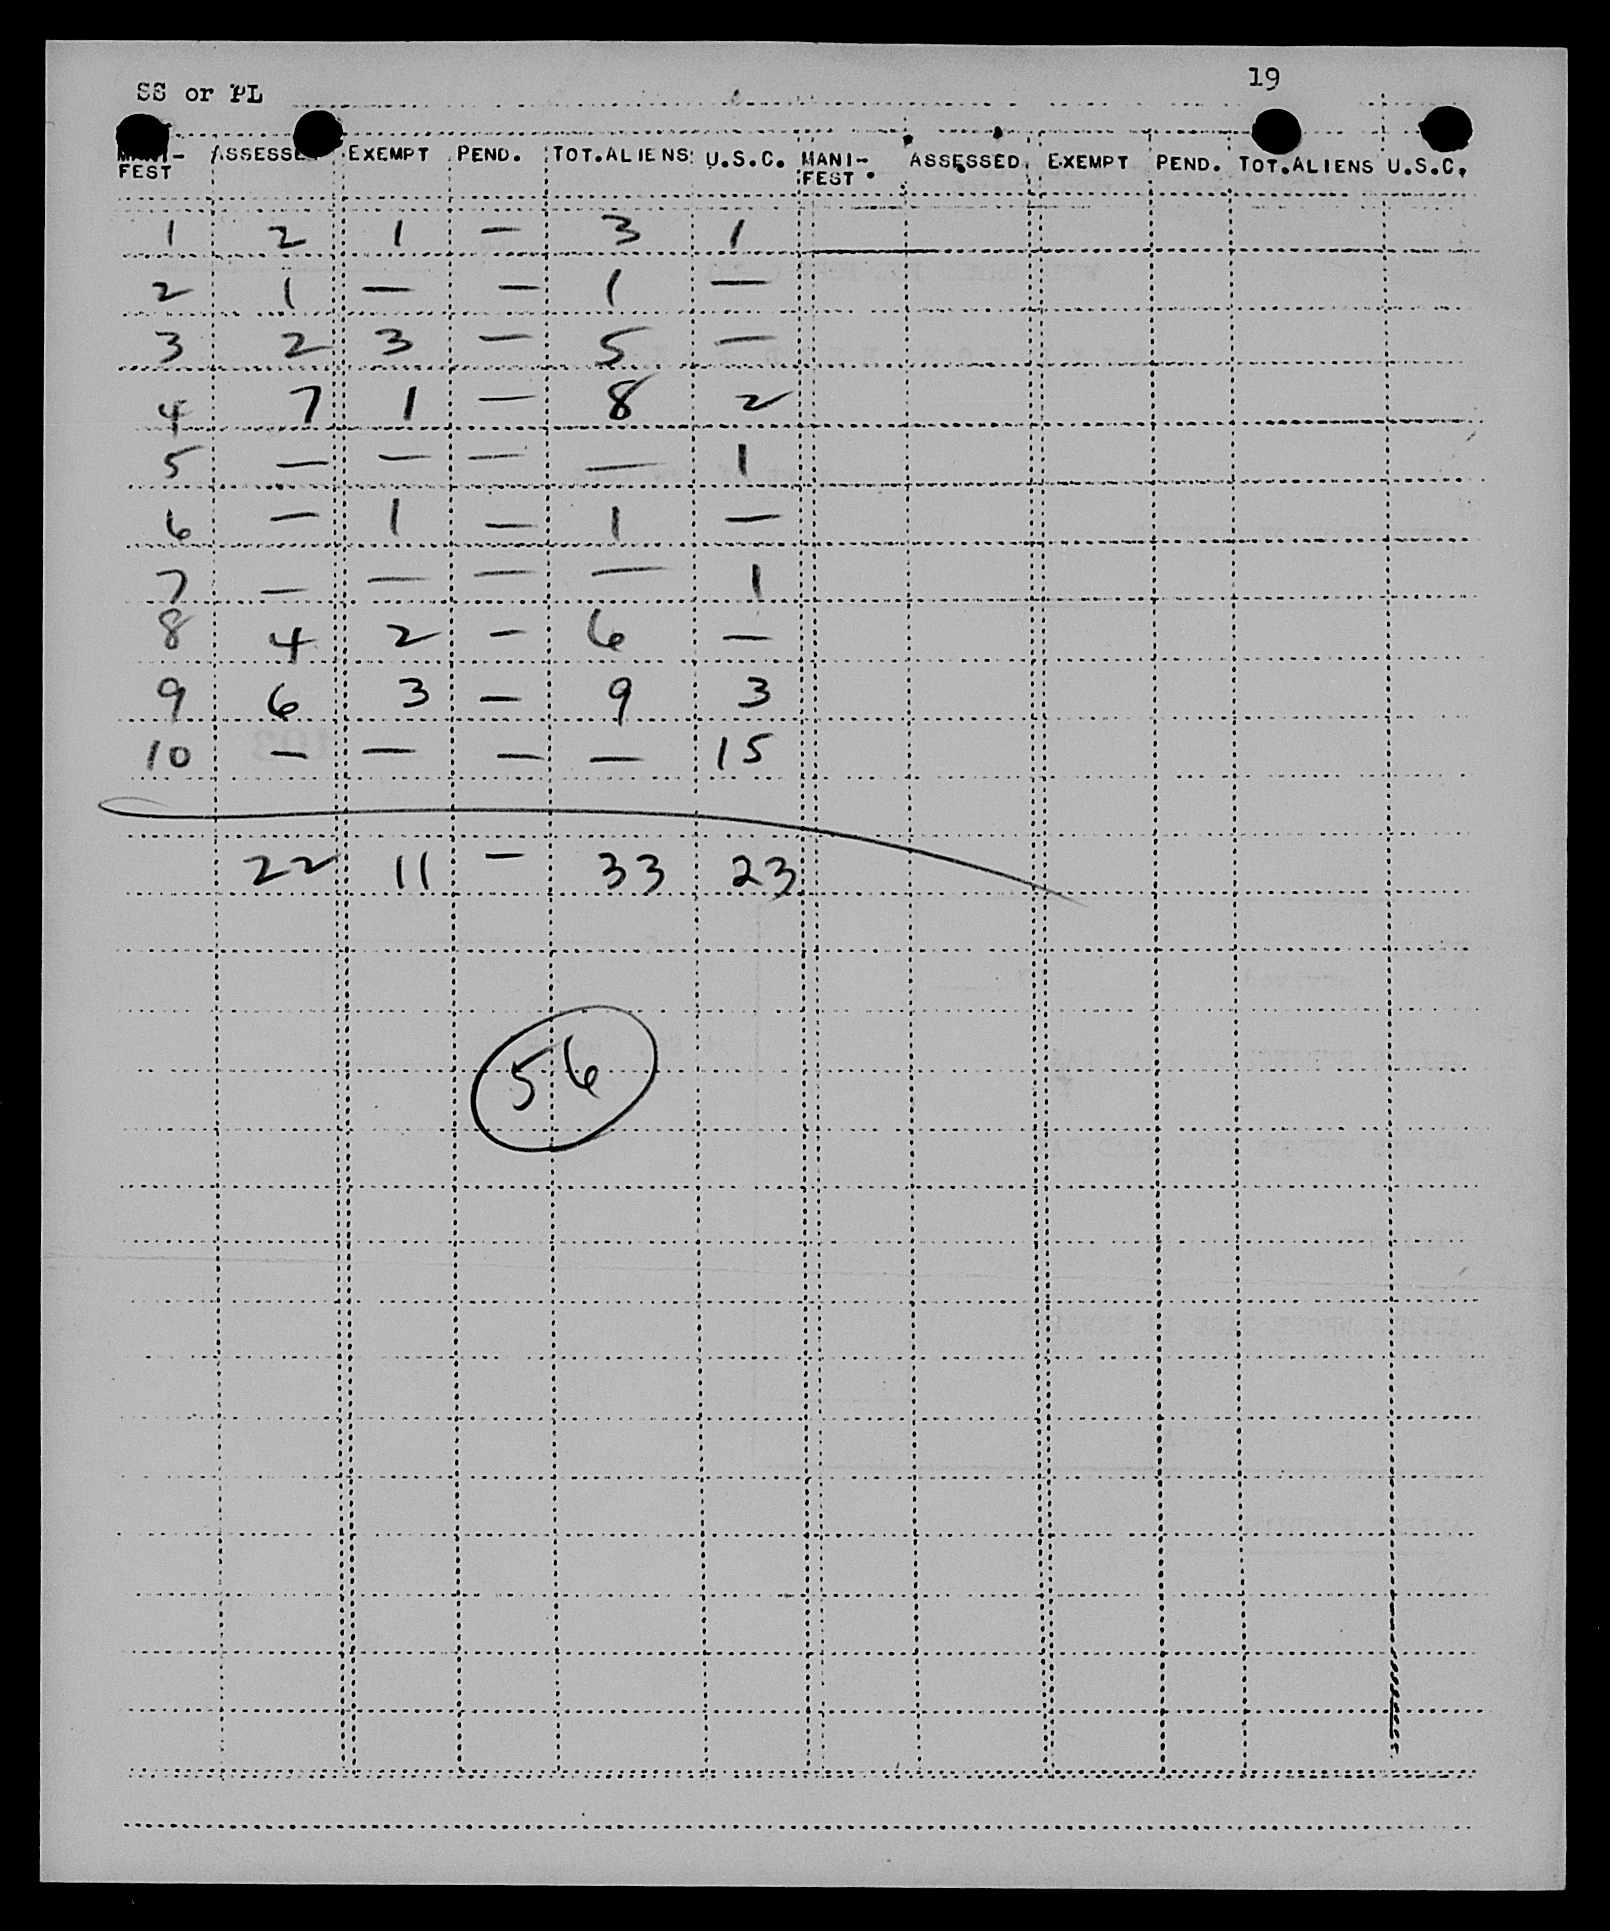 SS or PL 19
MANI-FEST ASSESSED EXEMPT PEND. TOT.ALIENS U.S.C. MANI-FEST ASSESSED EXEMPT PEND. TOT.ALIENS U.S.C.
1 2 1 — 3 1
2 1 — — 1 —
3 2 3 — 5 —
4 7 1 — 8 2
5 — — — — 1
6 — 1 — 1 —
7 — — — — 1
8 4 2 — 6 —
9 6 3 — 9 3
10 — — — — 15
22 11 — 33 23
56